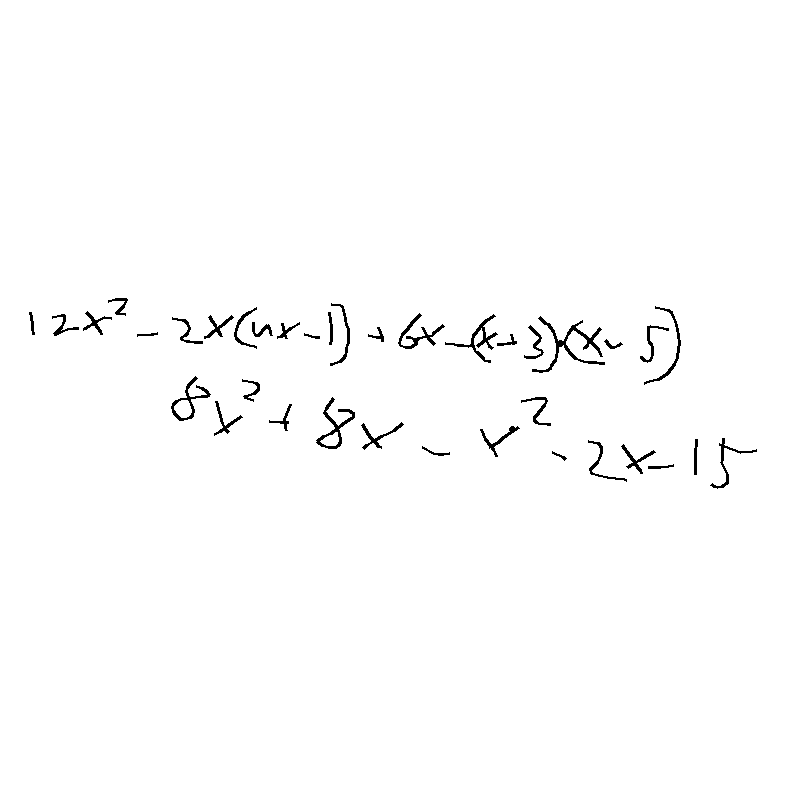 12x² - 2x(4x-1) + 6x - (x+3)·(x-5)
8x² + 8x - x² - 2x - 15